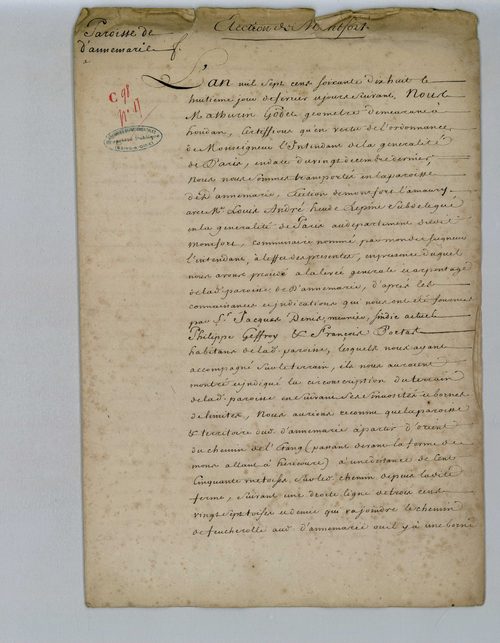 Paroisse de
d'annemarie
Élection de Montfort
C 91
n° 11
L'an mil sept cens soixante dix huit le
huitieme jour de février et jours suivant. Nous
Mathurin Godet geometre demeurant à
houdan, Certiffions qu'en vertu de l'ordonnance
de Monseigneur l'Intendant de la generalité
de Paris, en date du vingt decembre dernier,
Nous nous sommes transportés en la paroisse
d'annemarie, Election de montfort l'amaury
avec Mr. Louis André Subdelegué
en la generalité de Paris au departement dudit
Montfort, commissaire nommé par mondit seigneur
l'intendant, à l'effet des presentes, en presence duquel
nous avons procédé a la levée generale et arpentage
de lad. paroisse de d'annemarie, d'après les
connaissances et indications qui nous ont eté fournies
par Sr. Jacques Denis, meunier, sindic actuel
Philippe Geffroy & François Poetas
habitans de lad. paroisse, lesquels nous ayant
accompagné sur le terrain, et nous auroient
montré et indiqué la circonscription du terrain
de lad. paroisse en suivant ses sinuosités et bornes
de limites, Nous aurions reconnu que la paroisse
& territoire dud. d'annemarie à partir d'orient
du chemin de l'Etang (passant devant la ferme de
mons allant à ) à une distance de Cent
Cinquante une toises sur led. chemin depuis la dite
ferme, suivant une droite ligne de trois cens
vingt sept toises et demie qui va joindre le chemin
de feucherolle aud. d'annemarie ou il y a une borne